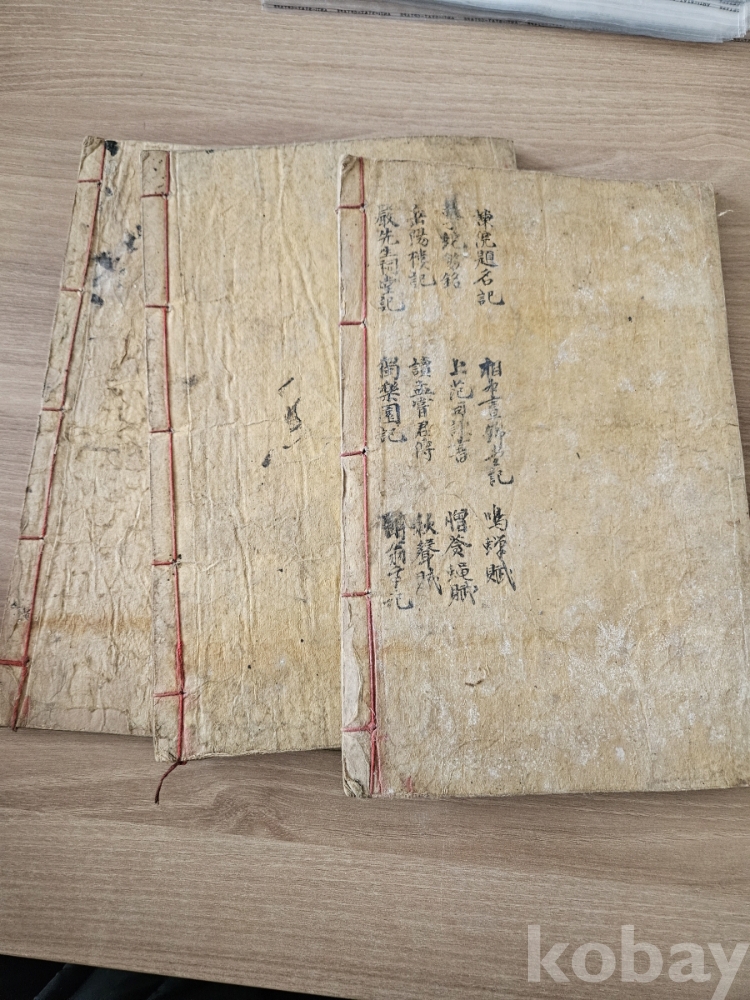 嚴先生祠堂記
岳陽樓記
擊蛇笏銘
諫院題名記
獨樂園記
讀孟嘗君傳
上范司諫書
相州晝錦堂記
醉翁亭記
秋聲賦
憎蒼蠅賦
鳴蟬賦
kobay